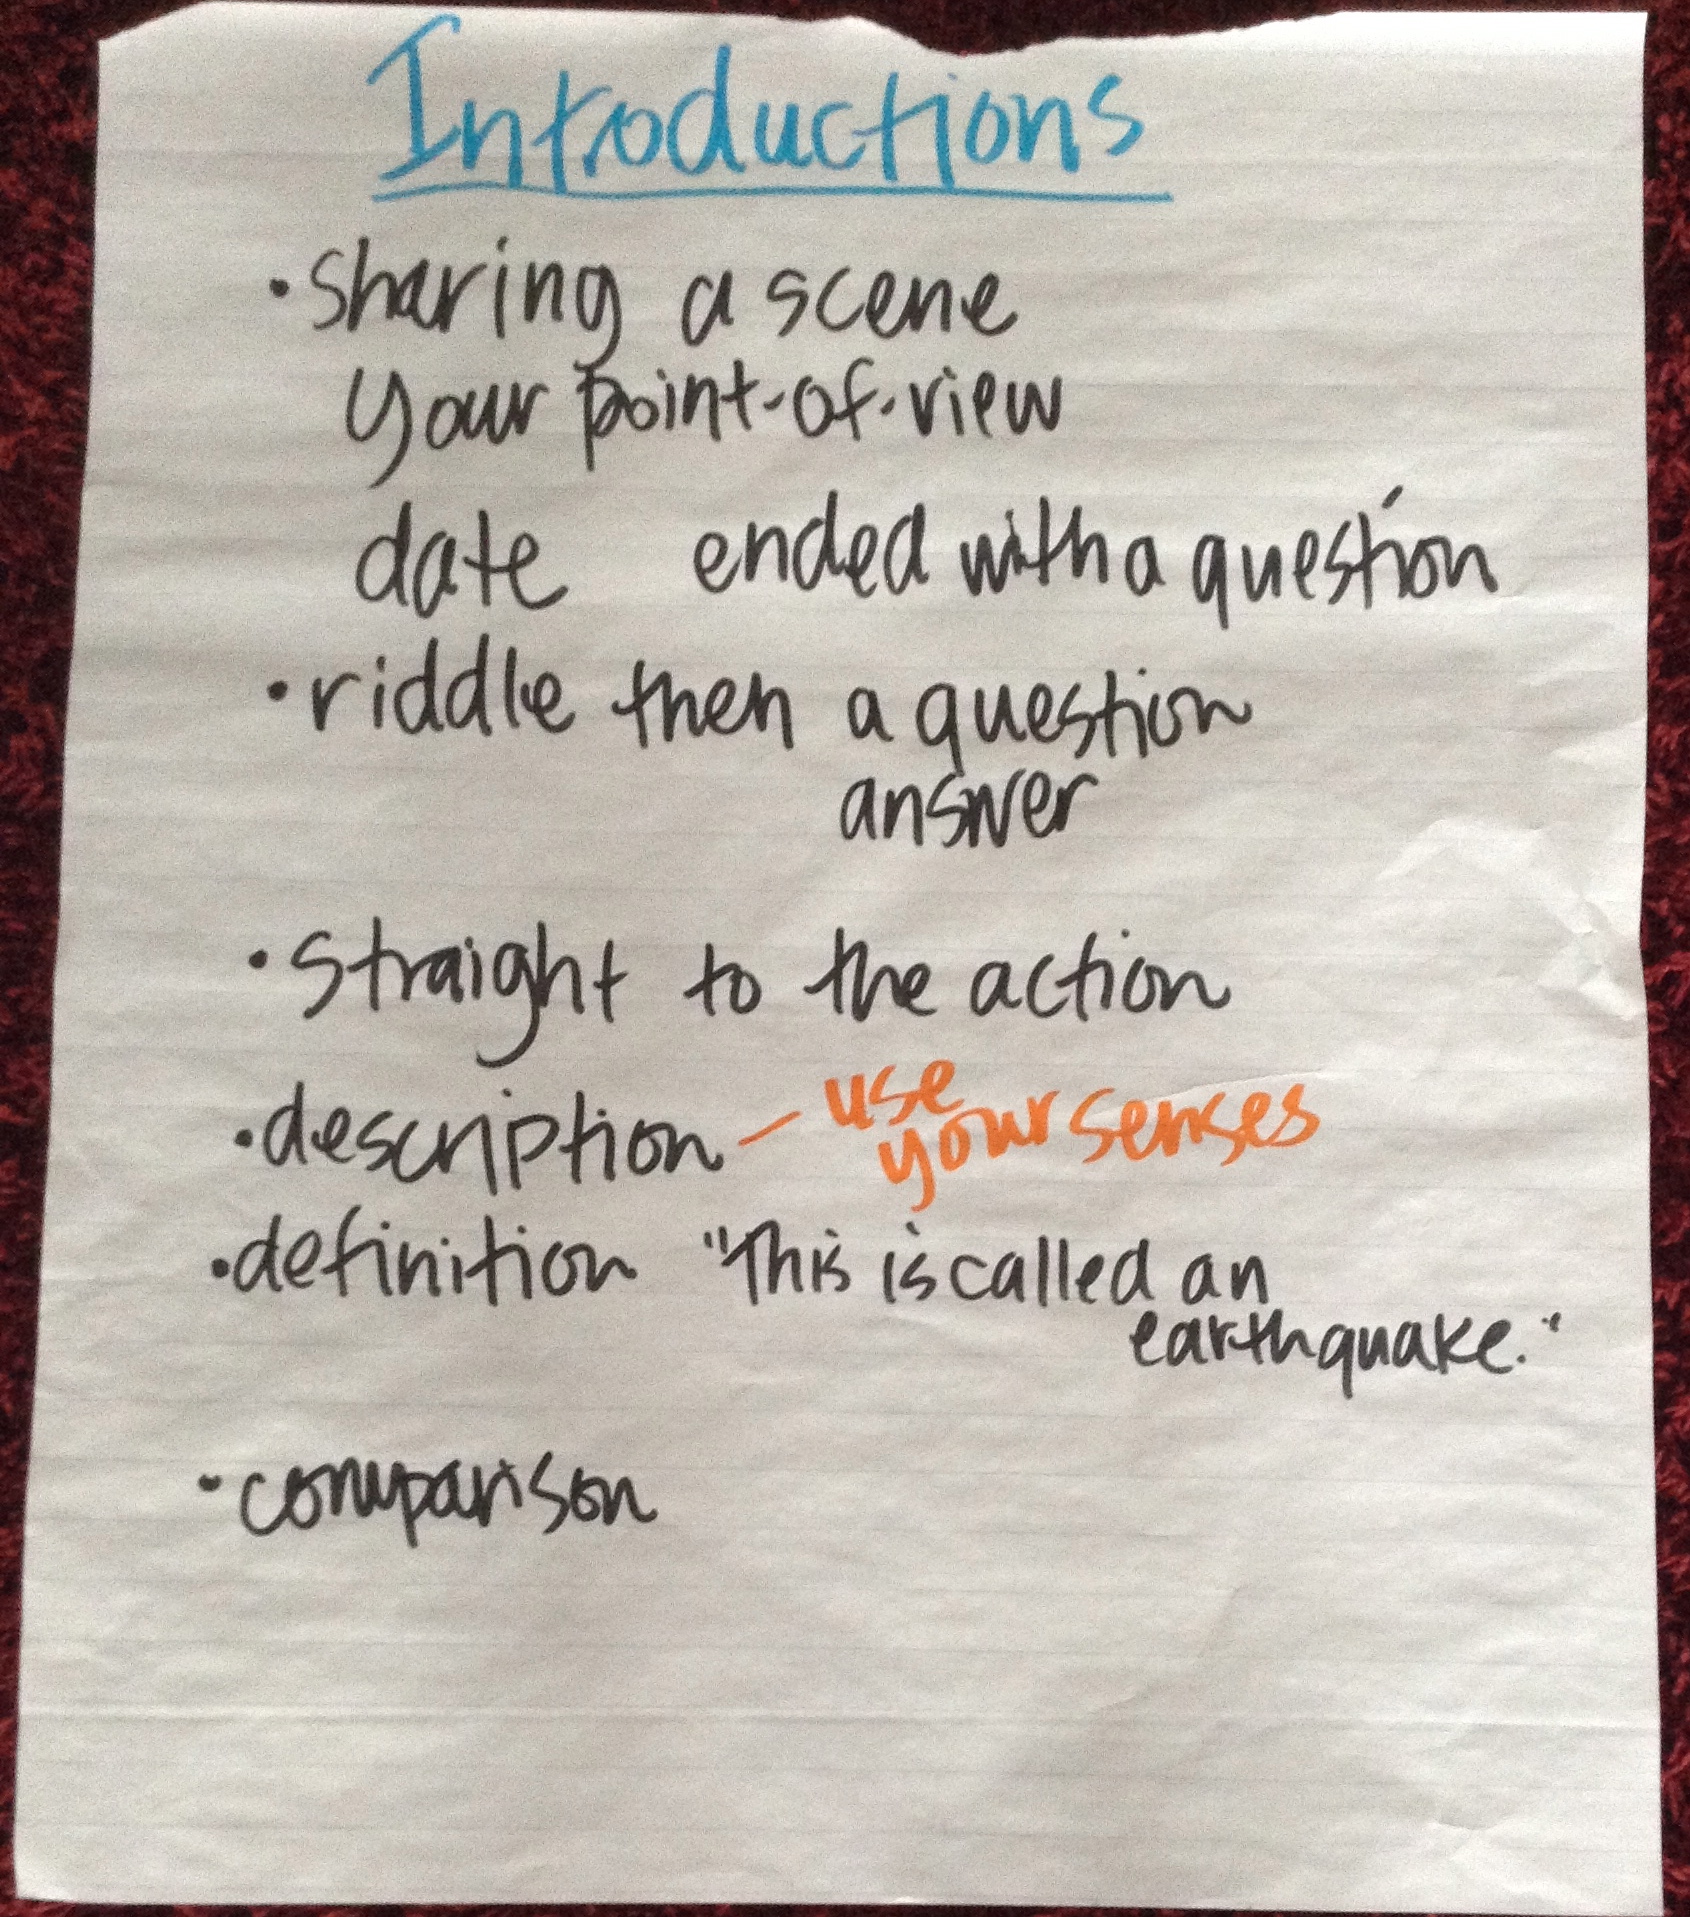 Introductions
• sharing a scene
your point-of-view
date ended with a question
• riddle then a question
answer
• straight to the action
• description — use
your senses
• definition "This is called an
earthquake."
• comparison